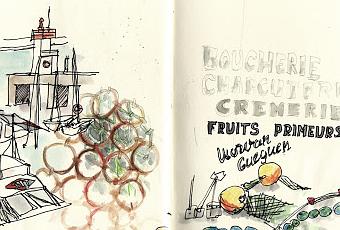 BOUCHERIE
CHARCUTERI
CREMERIE
FRUITS PRIMEURS